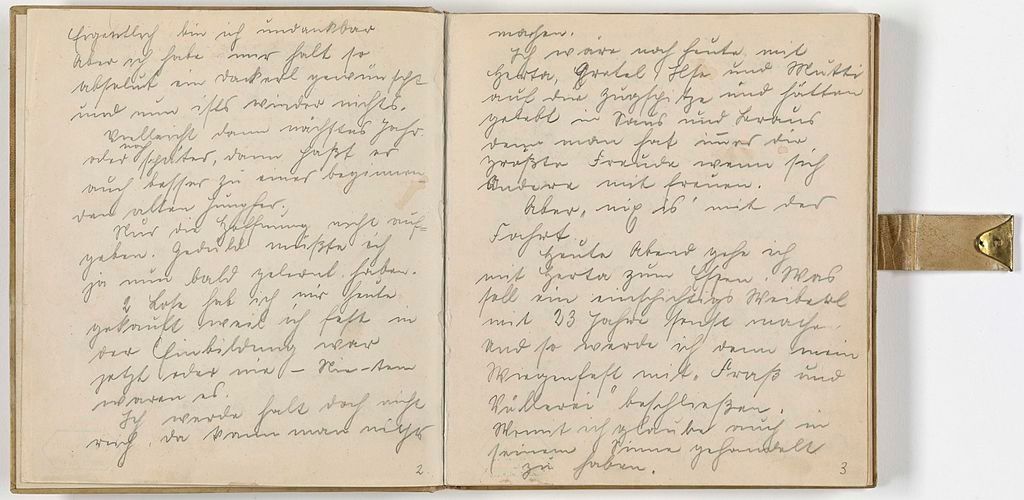 Eigentlich bin ich undankbar
Aber ich habe mir halt so
absolut ein Dackerl gewünscht
und nun ists wieder nichts.
Vielleicht dann nächstes Jahr
oder noch später, dann paßt es
auch besser zu einer beginnen-
den alten Jungfer.
Nur die Hoffnung nicht auf-
geben. Geduld müßte ich
ja nun bald gelernt haben.
2 Lose hab ich mir heute
gekauft weil ich fest in
der Einbildung war
jetzt oder nie – Nie-ten
waren es.
Ich werde halt doch nicht
reich, da kann man nichts
2
machen.
Ich wäre noch heute mit
Herta, Gretel, Ilse und Mutti
auf die Zugspitze und hätten
gelebt in Saus und Braus
denn man hat immer die
größte Freude wenn sich
Andere mit freuen.
Aber „nix is" mit der
Fahrt.
Heute Abend gehe ich
mit Herta zum Essen. Was
soll ein einschichtigs Weiberl
mit 23 Jahre sonst machen.
Und so werde ich denn mein
Wiegenfest mit „Fraß und
Völlerei" beschließen.
Womit ich glaube auch in
seinem Sinne gehandelt
zu haben.
3